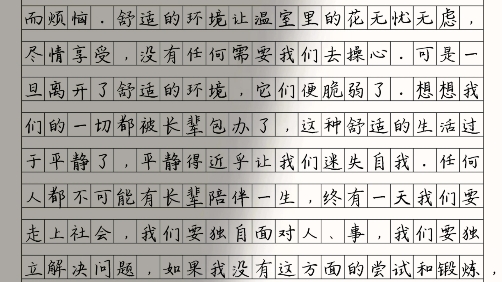 而烦恼．舒适的环境让温室里的花无忧无虑，
尽情享受，没有任何需要我们去操心．可是一
旦离开了舒适的环境，它们便脆弱了．想想我
们的一切都被长辈包办了，这种舒适的生活过
于平静了，平静得近乎让我们迷失自我．任何
人都不可能有长辈陪伴一生，终有一天我们要
走上社会，我们要独自面对人、事，我们要独
立解决问题，如果我没有这方面的尝试和锻炼，